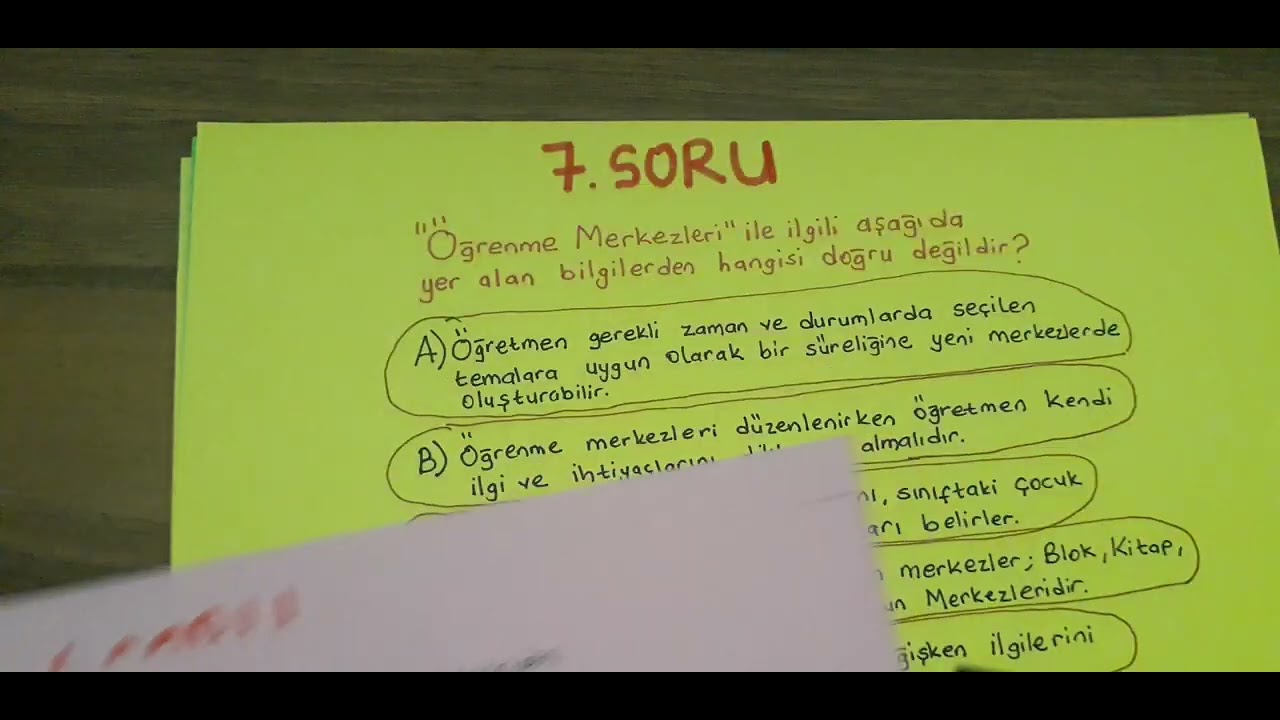 7. SORU
"Öğrenme Merkezleri" ile ilgili aşağıda
yer alan bilgilerden hangisi doğru değildir?
A) Öğretmen gerekli zaman ve durumlarda seçilen
temalara uygun olarak bir süreliğine yeni merkezlerde
oluşturabilir.
B) Öğrenme merkezleri düzenlenirken öğretmen kendi
ilgi ve ihtiyaçlarını almalıdır.
sınıftaki çocuk
belirler.
merkezler; Blok, Kitap,
Merkezleridir.
ilgilerini